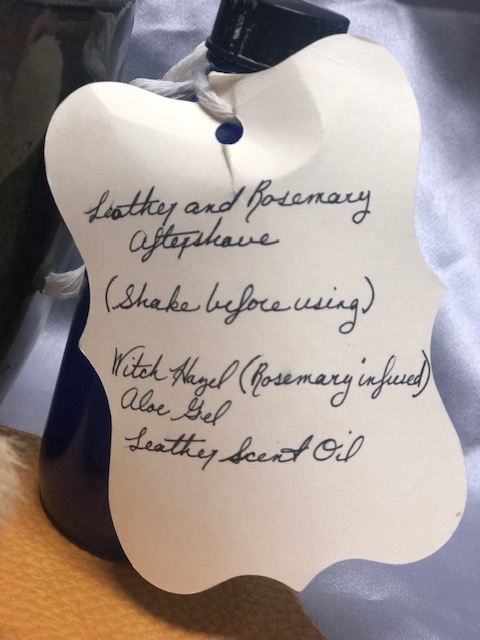 Leather and Rosemary
Aftershave
(Shake before using)
Witch Hazel (Rosemary infused)
Aloe Gel
Leather Scent Oil